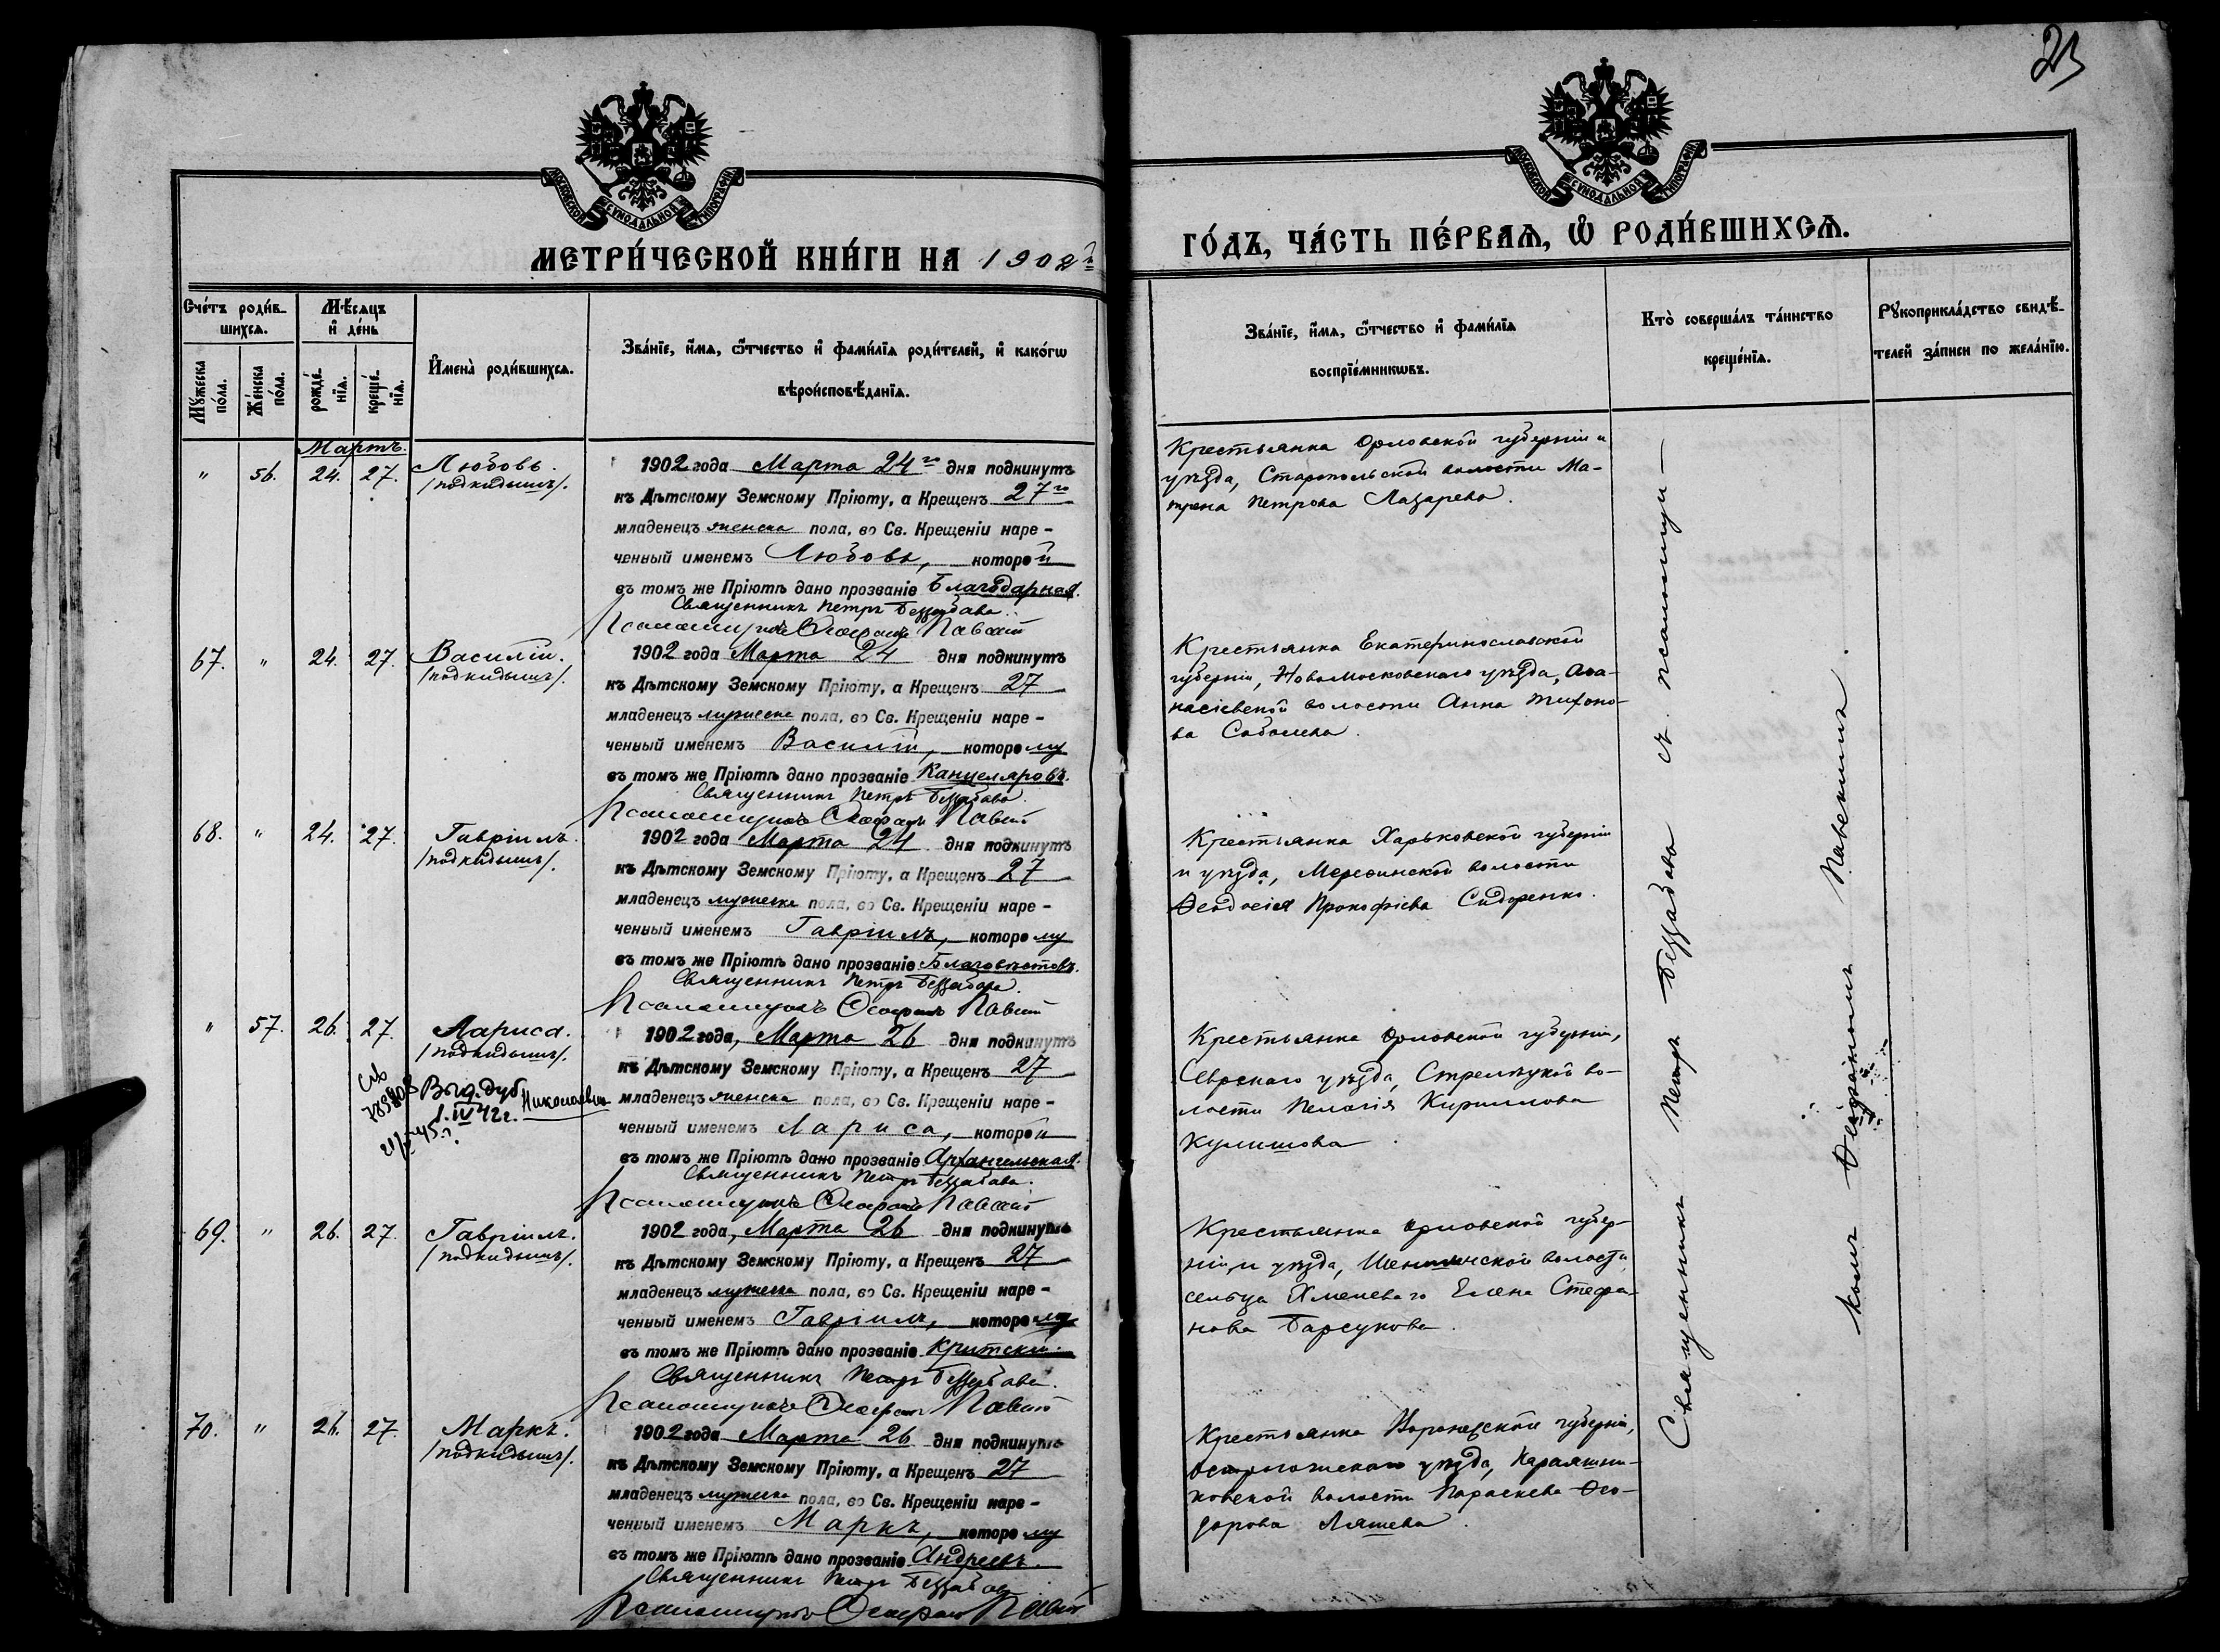 23
МОСКОВСКОЙ СѴНОДАЛЬНОЙ ТИПОГРАФІИ
МОСКОВСКОЙ СѴНОДАЛЬНОЙ ТИПОГРАФІИ
МЕТРИ́ЧЕСКОЙ КНИ́ГИ НА 1902й
ГО́ДЪ, ЧА́СТЬ ПЕ́РВАѦ, Ѡ҆ РОДИ́ВШИХСѦ.
Сче́тъ роди́в-
шихсѧ.
Мꙋ́жеска по́ла.
Же́нска по́ла.
Мѣ́сѧцъ
и҆ де́нь
рожде́-
нїѧ.
креще́-
нїѧ.
И҆мена̀ роди́вшихсѧ.
Зва́нїе, и҆́мѧ, ѻ҆́тчество и҆ фами́лїѧ роди́телей, и҆ како́гѡ
вѣроисповѣ́данїѧ.
Зва́нїе, и҆́мѧ, ѻ҆́тчество и҆ фами́лїѧ
воспрїе́мникѡвъ.
Кто̀ соверша́лъ та́инство
креще́нїѧ.
Рꙋкоприкла́дство свидѣ́-
телей за́писи по жела́нїю.
Мартъ.
" 56. 24. 27. Любовь.
/подкидышъ/.
1902 года Марта 24го дня подкинутъ
къ Дѣтскому Земскому Пріюту, а Крещенъ 27го
младенецъ женска пола, во Св. Крещеніи наре-
ченный именемъ Любовь, которой
въ томъ же Пріютѣ дано прозваніе Благодарная.
Священникъ Петръ
Псаломщикъ
Крестьянка Орловской губерніи и
уѣзда, Старопольской волости Ма-
трена Петрова Лазарева.
67. " 24. 27. Василій.
/подкидышъ/.
1902 года Марта 24 дня подкинутъ
къ Дѣтскому Земскому Пріюту, а Крещенъ 27
младенецъ мужеска пола, во Св. Крещеніи наре-
ченный именемъ Василій, которому
въ томъ же Пріютѣ дано прозваніе Канцеляровъ.
Священникъ Петръ
Псаломщикъ
Крестьянка Екатеринославской
губерніи, Новомосковскаго уѣзда, Аѳа-
насіевской волости Анна Тихоно-
ва Соболева.
68. " 24. 27. Гавріилъ.
/подкидышъ/.
1902 года Марта 24 дня подкинутъ
къ Дѣтскому Земскому Пріюту, а Крещенъ 27
младенецъ мужеска пола, во Св. Крещеніи наре-
ченный именемъ Гавріилъ, которому
въ томъ же Пріютѣ дано прозваніе Благовѣстовъ.
Священникъ Петръ
Псаломщикъ
Крестьянка Харьковской губерніи
и уѣзда, Мереѳинской волости
Ѳеодосія Прокофіева Сидоренко.
" 57. 26. 27. Лариса.
/подкидышъ/.
Выд. дуб. Николаевна
1.IV 42г.
1902 года, Марта 26 дня подкинутъ
къ Дѣтскому Земскому Пріюту, а Крещенъ 27
младенецъ женска пола, во Св. Крещеніи наре-
ченный именемъ Лариса, которой
въ томъ же Пріютѣ дано прозваніе Архангельская.
Священникъ Петръ
Псаломщикъ
Крестьянка Орловской губерніи,
Сѣвскаго уѣзда, Стрелецкой во-
лости Пелагія Кириллова
Кулешова.
69. " 26. 27. Гавріилъ.
/подкидышъ/.
1902 года, Марта 26 дня подкинутъ
къ Дѣтскому Земскому Пріюту, а Крещенъ 27
младенецъ мужеска пола, во Св. Крещеніи наре-
ченный именемъ Гавріилъ, которому
въ томъ же Пріютѣ дано прозваніе Критскій.
Священникъ Петръ
Псаломщикъ
Крестьянка Орловской губер-
ніи и уѣзда, волости
сельца Хмелеваго Елена Стефа-
нова Барсукова.
70. " 26. 27. Маркъ.
/подкидышъ/.
1902 года Марта 26 дня подкинутъ
къ Дѣтскому Земскому Пріюту, а Крещенъ 27
младенецъ мужеска пола, во Св. Крещеніи наре-
ченный именемъ Маркъ, которому
въ томъ же Пріютѣ дано прозваніе Андреевъ.
Священникъ Петръ
Псаломщикъ
Крестьянка Воронежской губерніи,
Острогожскаго уѣзда, Караяшни-
ковской волости Параскева Ѳео-
дорова Ляшева.
Священникъ Петръ съ псаломщи-
комъ